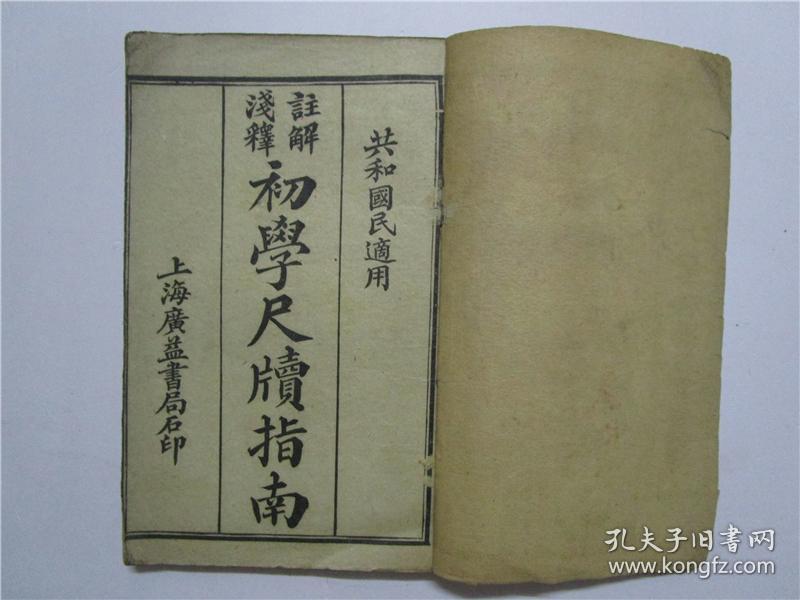 共和國民適用
註解
淺釋
初學尺牘指南
上海廣益書局石印
孔夫子旧书网
www.kongfz.com